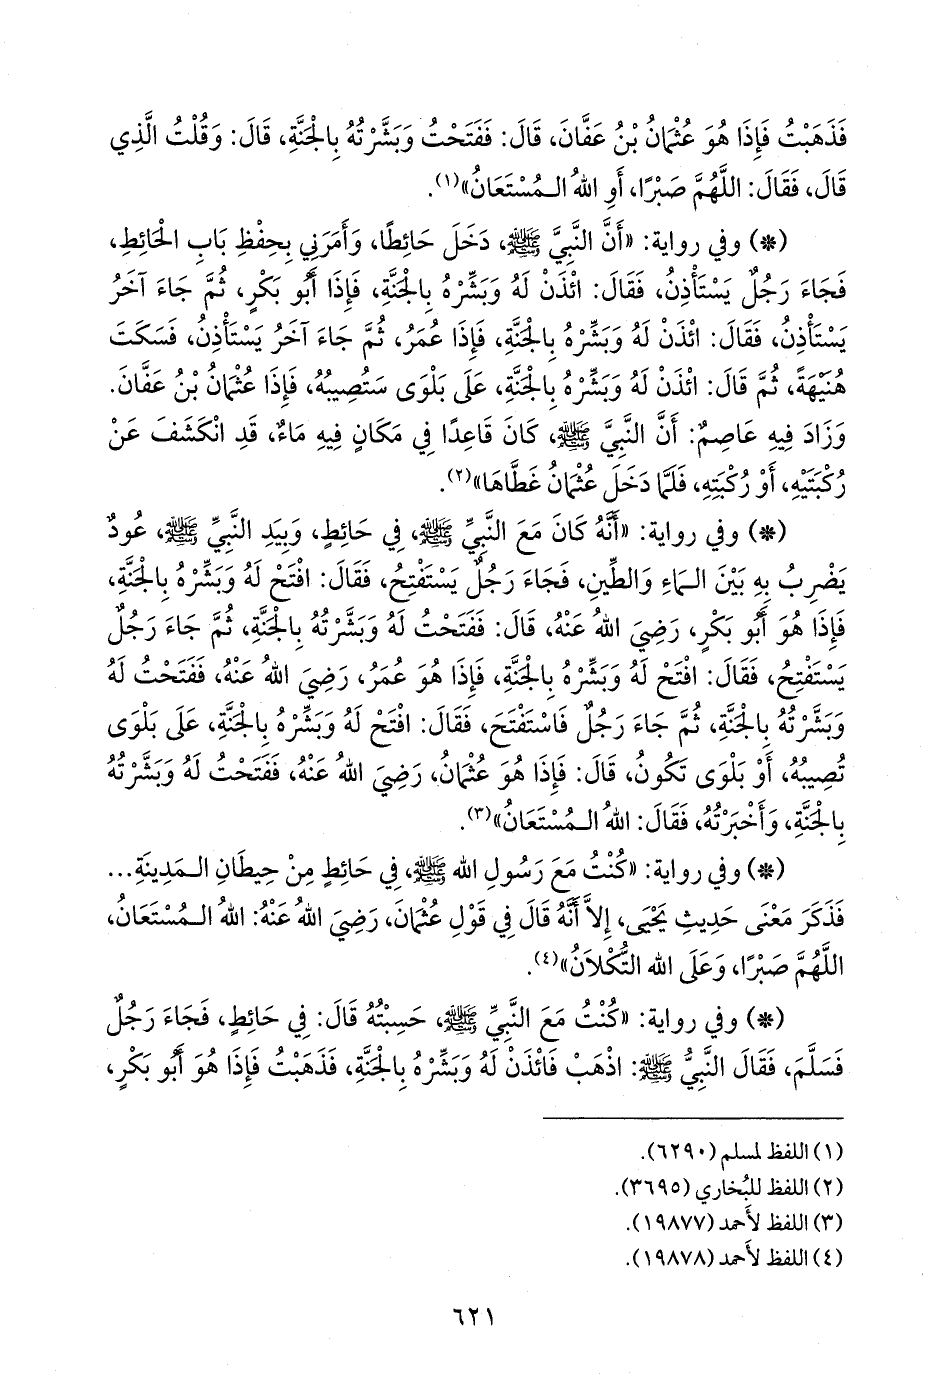 فَذَهَبْتُ فَإِذَا هُوَ عُثْمَانُ بْنُ عَفَّانَ، قَالَ: فَفَتَحْتُ وَبَشَّرْتُهُ بِالْجَنَّةِ، قَالَ: وَقُلْتُ الَّذِي
قَالَ، فَقَالَ: اللَّهُمَّ صَبْرًا، أَوِ اللهُ الـمُسْتَعَانُ»(١).
(*) وفي رواية: «أَنَّ النَّبِيَّ ﷺ، دَخَلَ حَائِطًا، وَأَمَرَنِي بِحِفْظِ بَابِ الْحَائِطِ،
فَجَاءَ رَجُلٌ يَسْتَأْذِنُ، فَقَالَ: ائْذَنْ لَهُ وَبَشِّرْهُ بِالْجَنَّةِ، فَإِذَا أَبُو بَكْرٍ، ثُمَّ جَاءَ آخَرُ
يَسْتَأْذِنُ، فَقَالَ: ائْذَنْ لَهُ وَبَشِّرْهُ بِالْجَنَّةِ، فَإِذَا عُمَرُ، ثُمَّ جَاءَ آخَرُ يَسْتَأْذِنُ، فَسَكَتَ
هُنَيْهَةً، ثُمَّ قَالَ: ائْذَنْ لَهُ وَبَشِّرْهُ بِالْجَنَّةِ، عَلَى بَلْوَى سَتُصِيبُهُ، فَإِذَا عُثْمَانُ بْنُ عَفَّانَ.
وَزَادَ فِيهِ عَاصِمٌ: أَنَّ النَّبِيَّ ﷺ، كَانَ قَاعِدًا فِي مَكَانٍ فِيهِ مَاءٌ، قَدِ انْكَشَفَ عَنْ
رُكْبَتَيْهِ، أَوْ رُكْبَتِهِ، فَلَمَّا دَخَلَ عُثْمَانُ غَطَّاهَا»(٢).
(*) وفي رواية: «أَنَّهُ كَانَ مَعَ النَّبِيِّ ﷺ، فِي حَائِطٍ، وَبِيَدِ النَّبِيِّ ﷺ، عُودٌ
يَضْرِبُ بِهِ بَيْنَ الـمَاءِ وَالطِّينِ، فَجَاءَ رَجُلٌ يَسْتَفْتِحُ، فَقَالَ: افْتَحْ لَهُ وَبَشِّرْهُ بِالْجَنَّةِ،
فَإِذَا هُوَ أَبُو بَكْرٍ، رَضِيَ اللهُ عَنْهُ، قَالَ: فَفَتَحْتُ لَهُ وَبَشَّرْتُهُ بِالْجَنَّةِ، ثُمَّ جَاءَ رَجُلٌ
يَسْتَفْتِحُ، فَقَالَ: افْتَحْ لَهُ وَبَشِّرْهُ بِالْجَنَّةِ، فَإِذَا هُوَ عُمَرُ، رَضِيَ اللهُ عَنْهُ، فَفَتَحْتُ لَهُ
وَبَشَّرْتُهُ بِالْجَنَّةِ، ثُمَّ جَاءَ رَجُلٌ فَاسْتَفْتَحَ، فَقَالَ: افْتَحْ لَهُ وَبَشِّرْهُ بِالْجَنَّةِ، عَلَى بَلْوَى
تُصِيبُهُ، أَوْ بَلْوَى تَكُونُ، قَالَ: فَإِذَا هُوَ عُثْمَانُ، رَضِيَ اللهُ عَنْهُ، فَفَتَحْتُ لَهُ وَبَشَّرْتُهُ
بِالْجَنَّةِ، وَأَخْبَرْتُهُ، فَقَالَ: اللهُ الـمُسْتَعَانُ»(٣).
(*) وفي رواية: «كُنْتُ مَعَ رَسُولِ الله ﷺ، فِي حَائِطٍ مِنْ حِيطَانِ الـمَدِينَةِ...
فَذَكَرَ مَعْنَى حَدِيثِ يَحْيَى، إِلاَّ أَنَّهُ قَالَ فِي قَوْلِ عُثْمَانَ، رَضِيَ اللهُ عَنْهُ: اللهُ الـمُسْتَعَانُ،
اللَّهُمَّ صَبْرًا، وَعَلَى الله التُّكْلاَنُ»(٤).
(*) وفي رواية: «كُنْتُ مَعَ النَّبِيِّ ﷺ، حَسِبْتُهُ قَالَ: فِي حَائِطٍ، فَجَاءَ رَجُلٌ
فَسَلَّمَ، فَقَالَ النَّبِيُّ ﷺ: اذْهَبْ فَائْذَنْ لَهُ وَبَشِّرْهُ بِالْجَنَّةِ، فَذَهَبْتُ فَإِذَا هُوَ أَبُو بَكْرٍ،
(١) اللفظ لمسلم (٦٢٩٠).
(٢) اللفظ للبُخاري (٣٦٩٥).
(٣) اللفظ لأَحمد (١٩٨٧٧).
(٤) اللفظ لأَحمد (١٩٨٧٨).
٦٢١